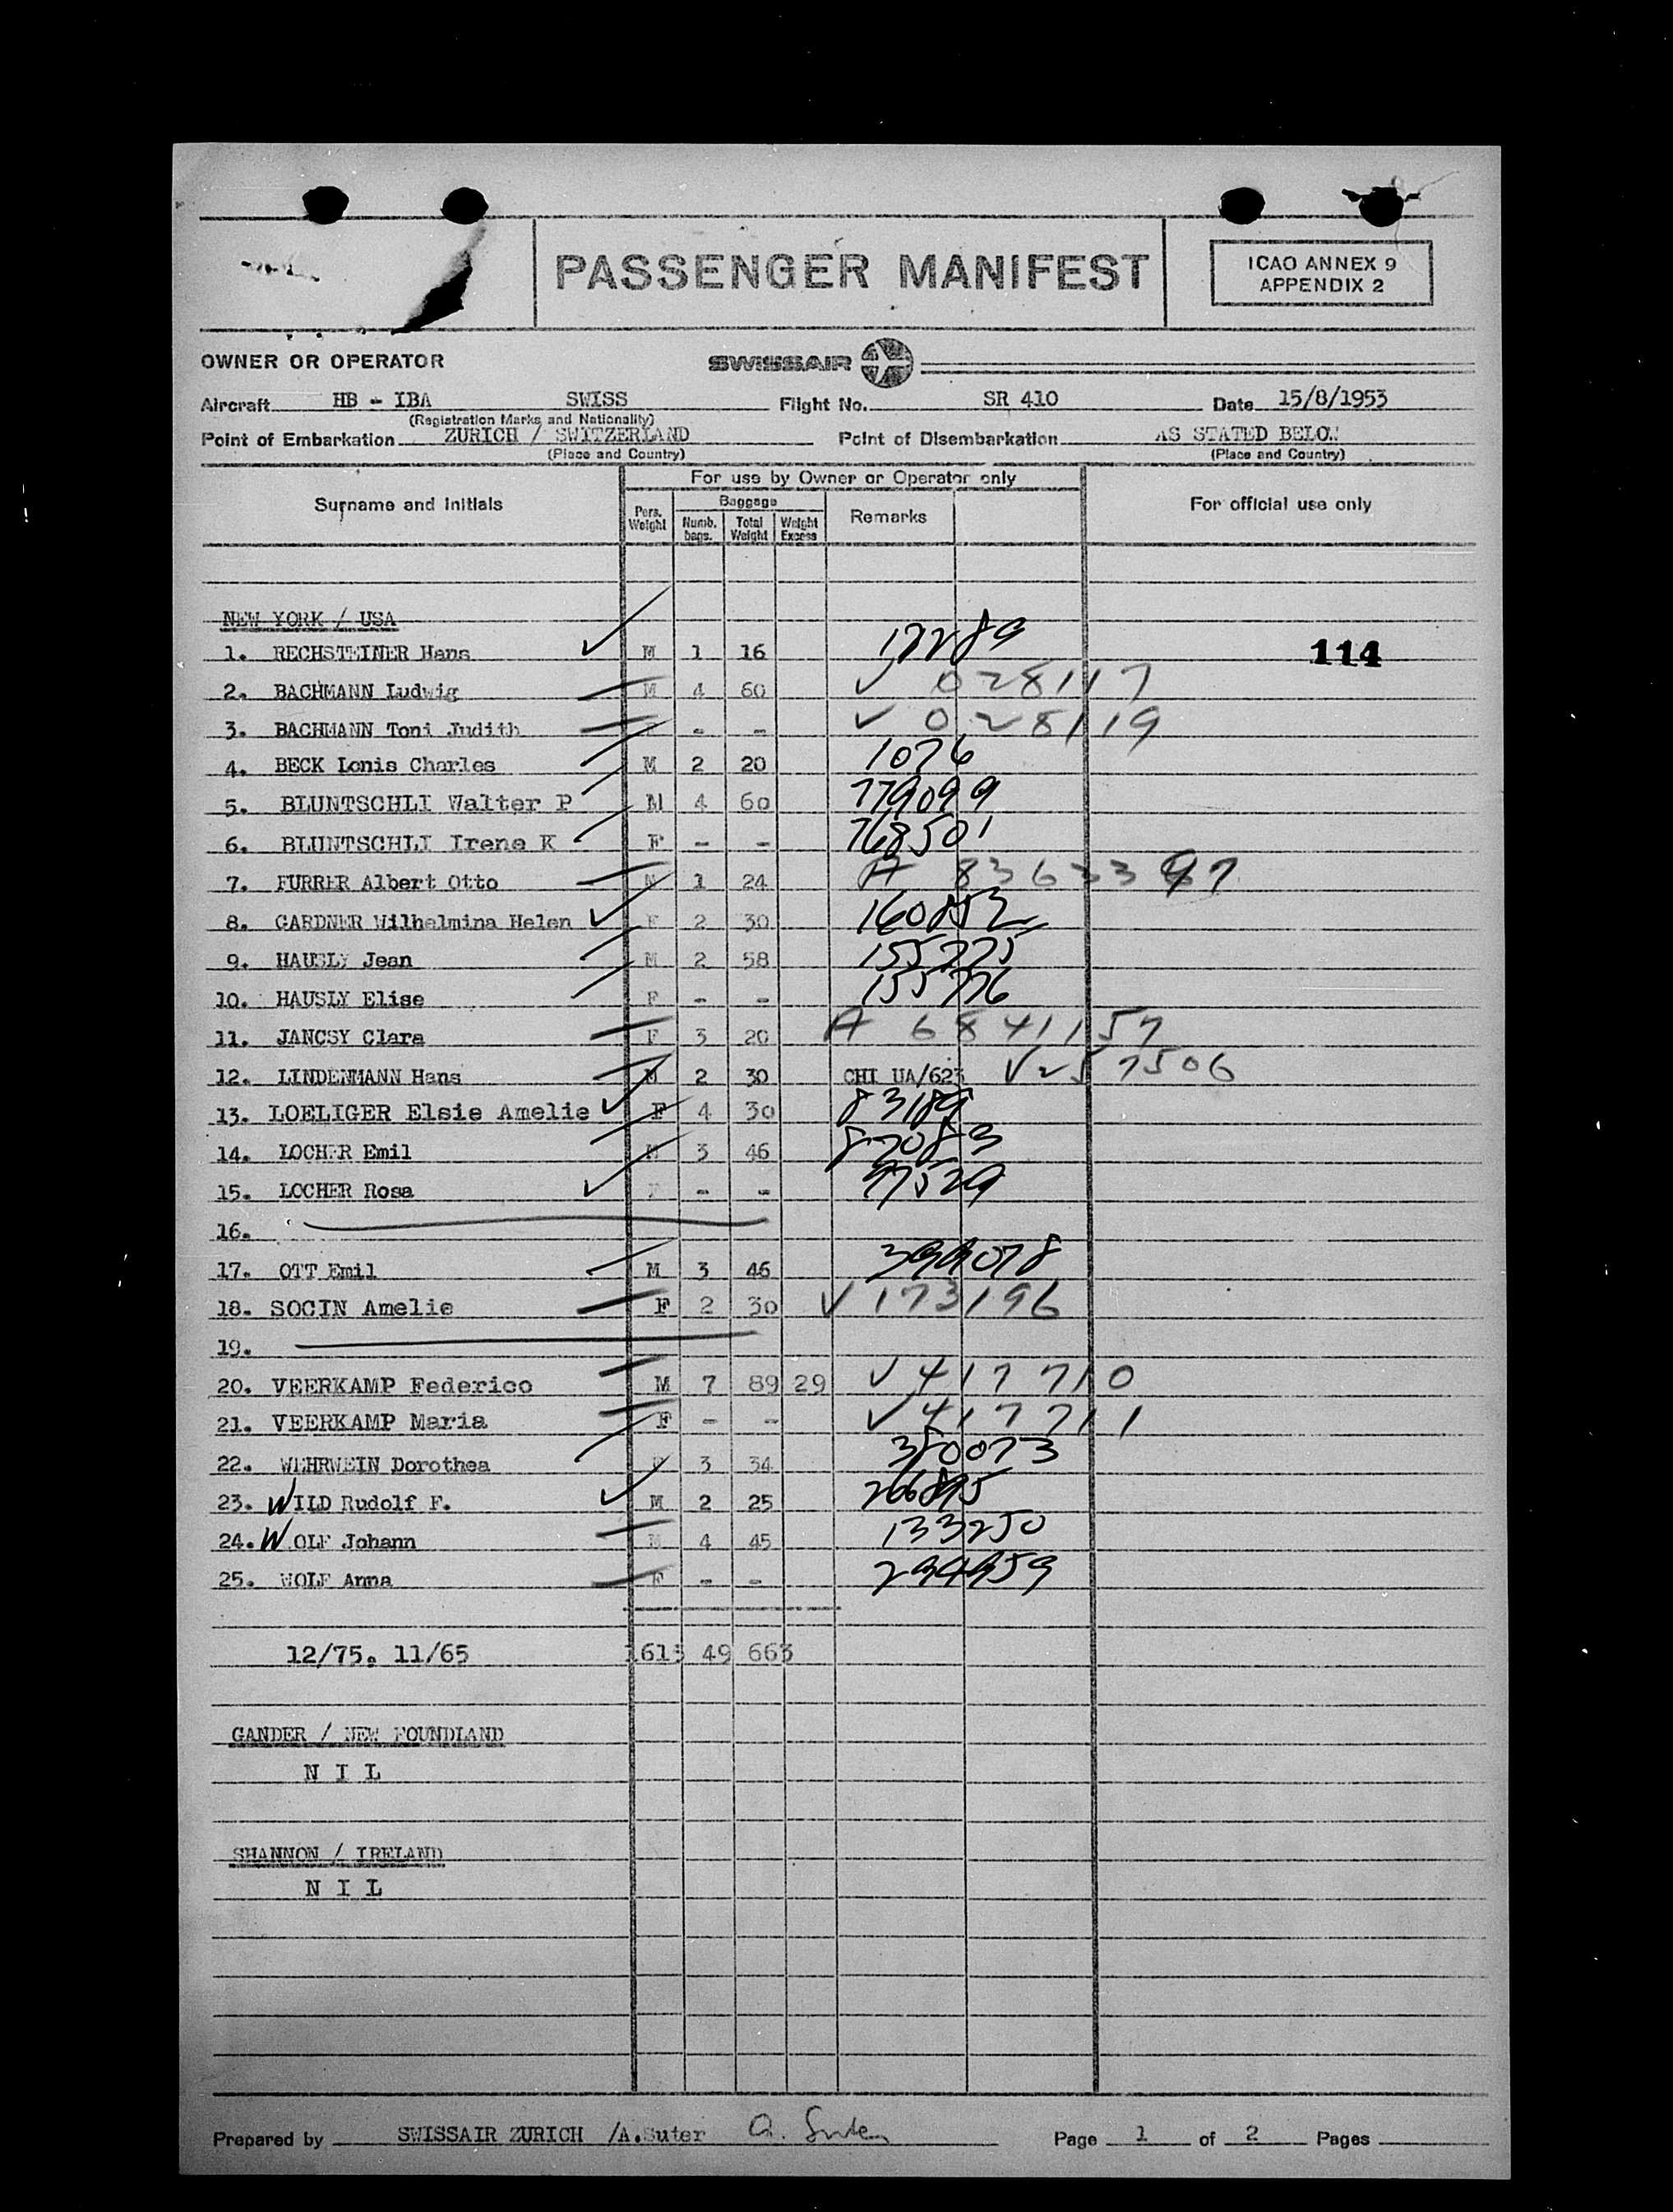 PASSENGER MANIFEST
ICAO ANNEX 9
APPENDIX 2
OWNER OR OPERATOR SWISSAIR
Aircraft HB - IBA SWISS Flight No. SR 410 Date 15/8/1953
(Registration Marks and Nationality)
Point of Embarkation ZURICH / SWITZERLAND Point of Disembarkation AS STATED BELOW
(Place and Country) (Place and Country)
For use by Owner or Operator only
Surname and Initials Pers. Weight Baggage Numb. bags. Total Weight Weight Excess Remarks For official use only
NEW YORK / USA
1. RECHSTEINER Hans M 1 16 17289 114
2. BACHMANN Ludwig M 4 60 ✓ 028117
3. BACHMANN Toni Judith - - ✓ 028119
4. BECK Lonis Charles M 2 20 1076
5. BLUNTSCHLI Walter P M 4 60 779099
6. BLUNTSCHLI Irene K F - - 768501
7. FURRER Albert Otto M 1 24 A
8. GARDNER Wilhelmina Helen F 2 30 160852
9. HAUSLY Jean M 2 58 155775
10. HAUSLY Elise F - - 155776
11. JANCSY Clara F 3 20 A 6841157
12. LINDENMANN Hans M 2 30 CHI UA/623 ✓ 257506
13. LOELIGER Elsie Amelie F 4 30 83189
14. LOCHER Emil M 3 46 87083
15. LOCHER Rosa F - - 37529
16.
17. OTT Emil M 3 46 399078
18. SOCIN Amelie F 2 30 ✓ 173196
19.
20. VEERKAMP Federico M 7 89 29 ✓ 417710
21. VEERKAMP Maria F - - ✓ 417711
22. WEHRWEIN Dorothea F 3 34 350073
23. WILD Rudolf F. M 2 25 266895
24. WOLF Johann M 4 45 133250
25. WOLF Anna F - - 294959
12/75. 11/65 1615 49 663
GANDER / NEW FOUNDLAND
N I L
SHANNON / IRELAND
N I L
Prepared by SWISSAIR ZURICH /A.Suter A. Suter Page 1 of 2 Pages